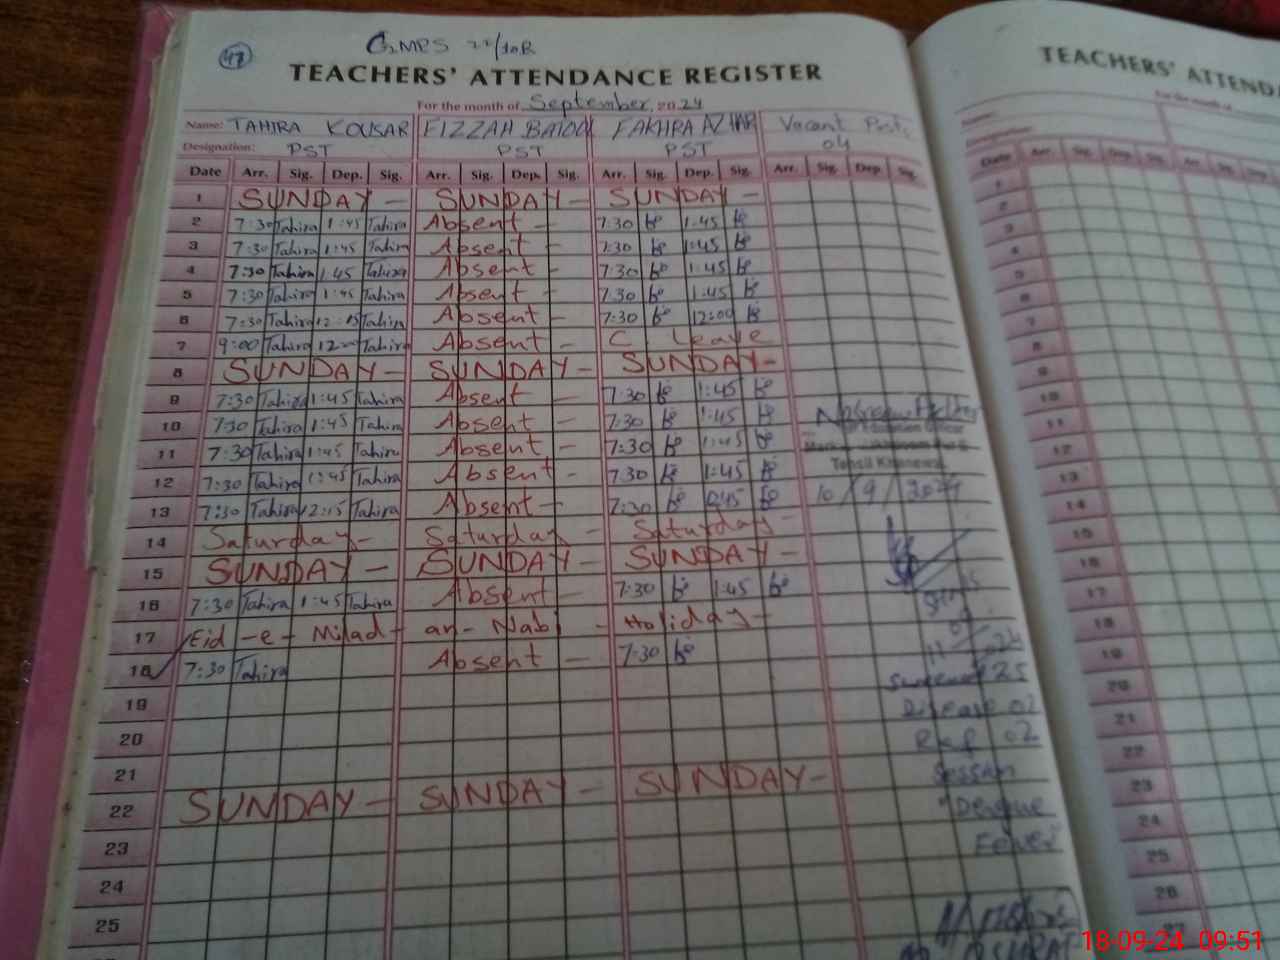 47
GMPS 22/10R
TEACHERS' ATTENDANCE REGISTER
For the month of September, 2024
Name: TAHIRA KOUSAR FIZZAH BATOOL FAKHRA AZHAR Vacant Posts
Designation: PST PST PST 04
Date Arr. Sig. Dep. Sig. Arr. Sig. Dep. Sig. Arr. Sig. Dep. Sig. Arr. Sig. Dep. Sig.
1 SUNDAY - SUNDAY - SUNDAY -
2 7:30 Tahira 1:45 Tahira Absent - 7:30 1:45
3 7:30 Tahira 1:45 Tahira Absent - 7:30 1:45
4 7:30 Tahira 1:45 Tahira Absent - 7:30 1:45
5 7:30 Tahira 1:45 Tahira Absent - 7:30 1:45
6 7:30 Tahira 12:15 Tahira Absent - 7:30 12:00
7 9:00 Tahira Tahira Absent - C Leave
8 SUNDAY - SUNDAY - SUNDAY -
9 7:30 Tahira 1:45 Tahira Absent - 7:30 1:45
10 7:30 Tahira 1:45 Tahira Absent - 7:30 1:45
11 7:30 Tahira 1:45 Tahira Absent - 7:30 1:45
Tehsil Khanewal
12 7:30 Tahira 1:45 Tahira Absent - 7:30 1:45
10/9/2024
13 7:30 Tahira 12:15 Tahira Absent - 7:30
14 Saturday - Saturday - Saturday -
15 SUNDAY - SUNDAY - SUNDAY -
16 7:30 Tahira 1:45 Tahira Absent - 7:30 1:45
17 Eid-e-Milad-an-Nabi - Holiday -
18 7:30 Tahira Absent - 7:30
19
Disease 02
20
21
Session
22 SUNDAY - SUNDAY - SUNDAY -
"Dengue
23
Fever"
24
25
TEACHERS' ATTENDA
For the month of
Name:
Designation:
Date Arr. Sig. Dep. Sig. Arr. Sig. Dep.
1
2
3
4
5
6
7
8
9
10
11
12
13
14
15
16
17
18
19
20
21
22
23
24
25
26
27
18-09-24 09:51